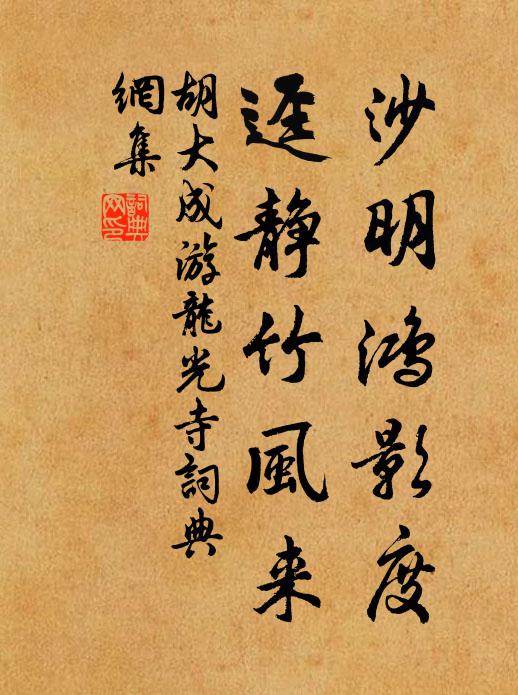 沙明鸿影度
迳静竹風来
胡大成游龍光寺詞典
網集
詞典
网印